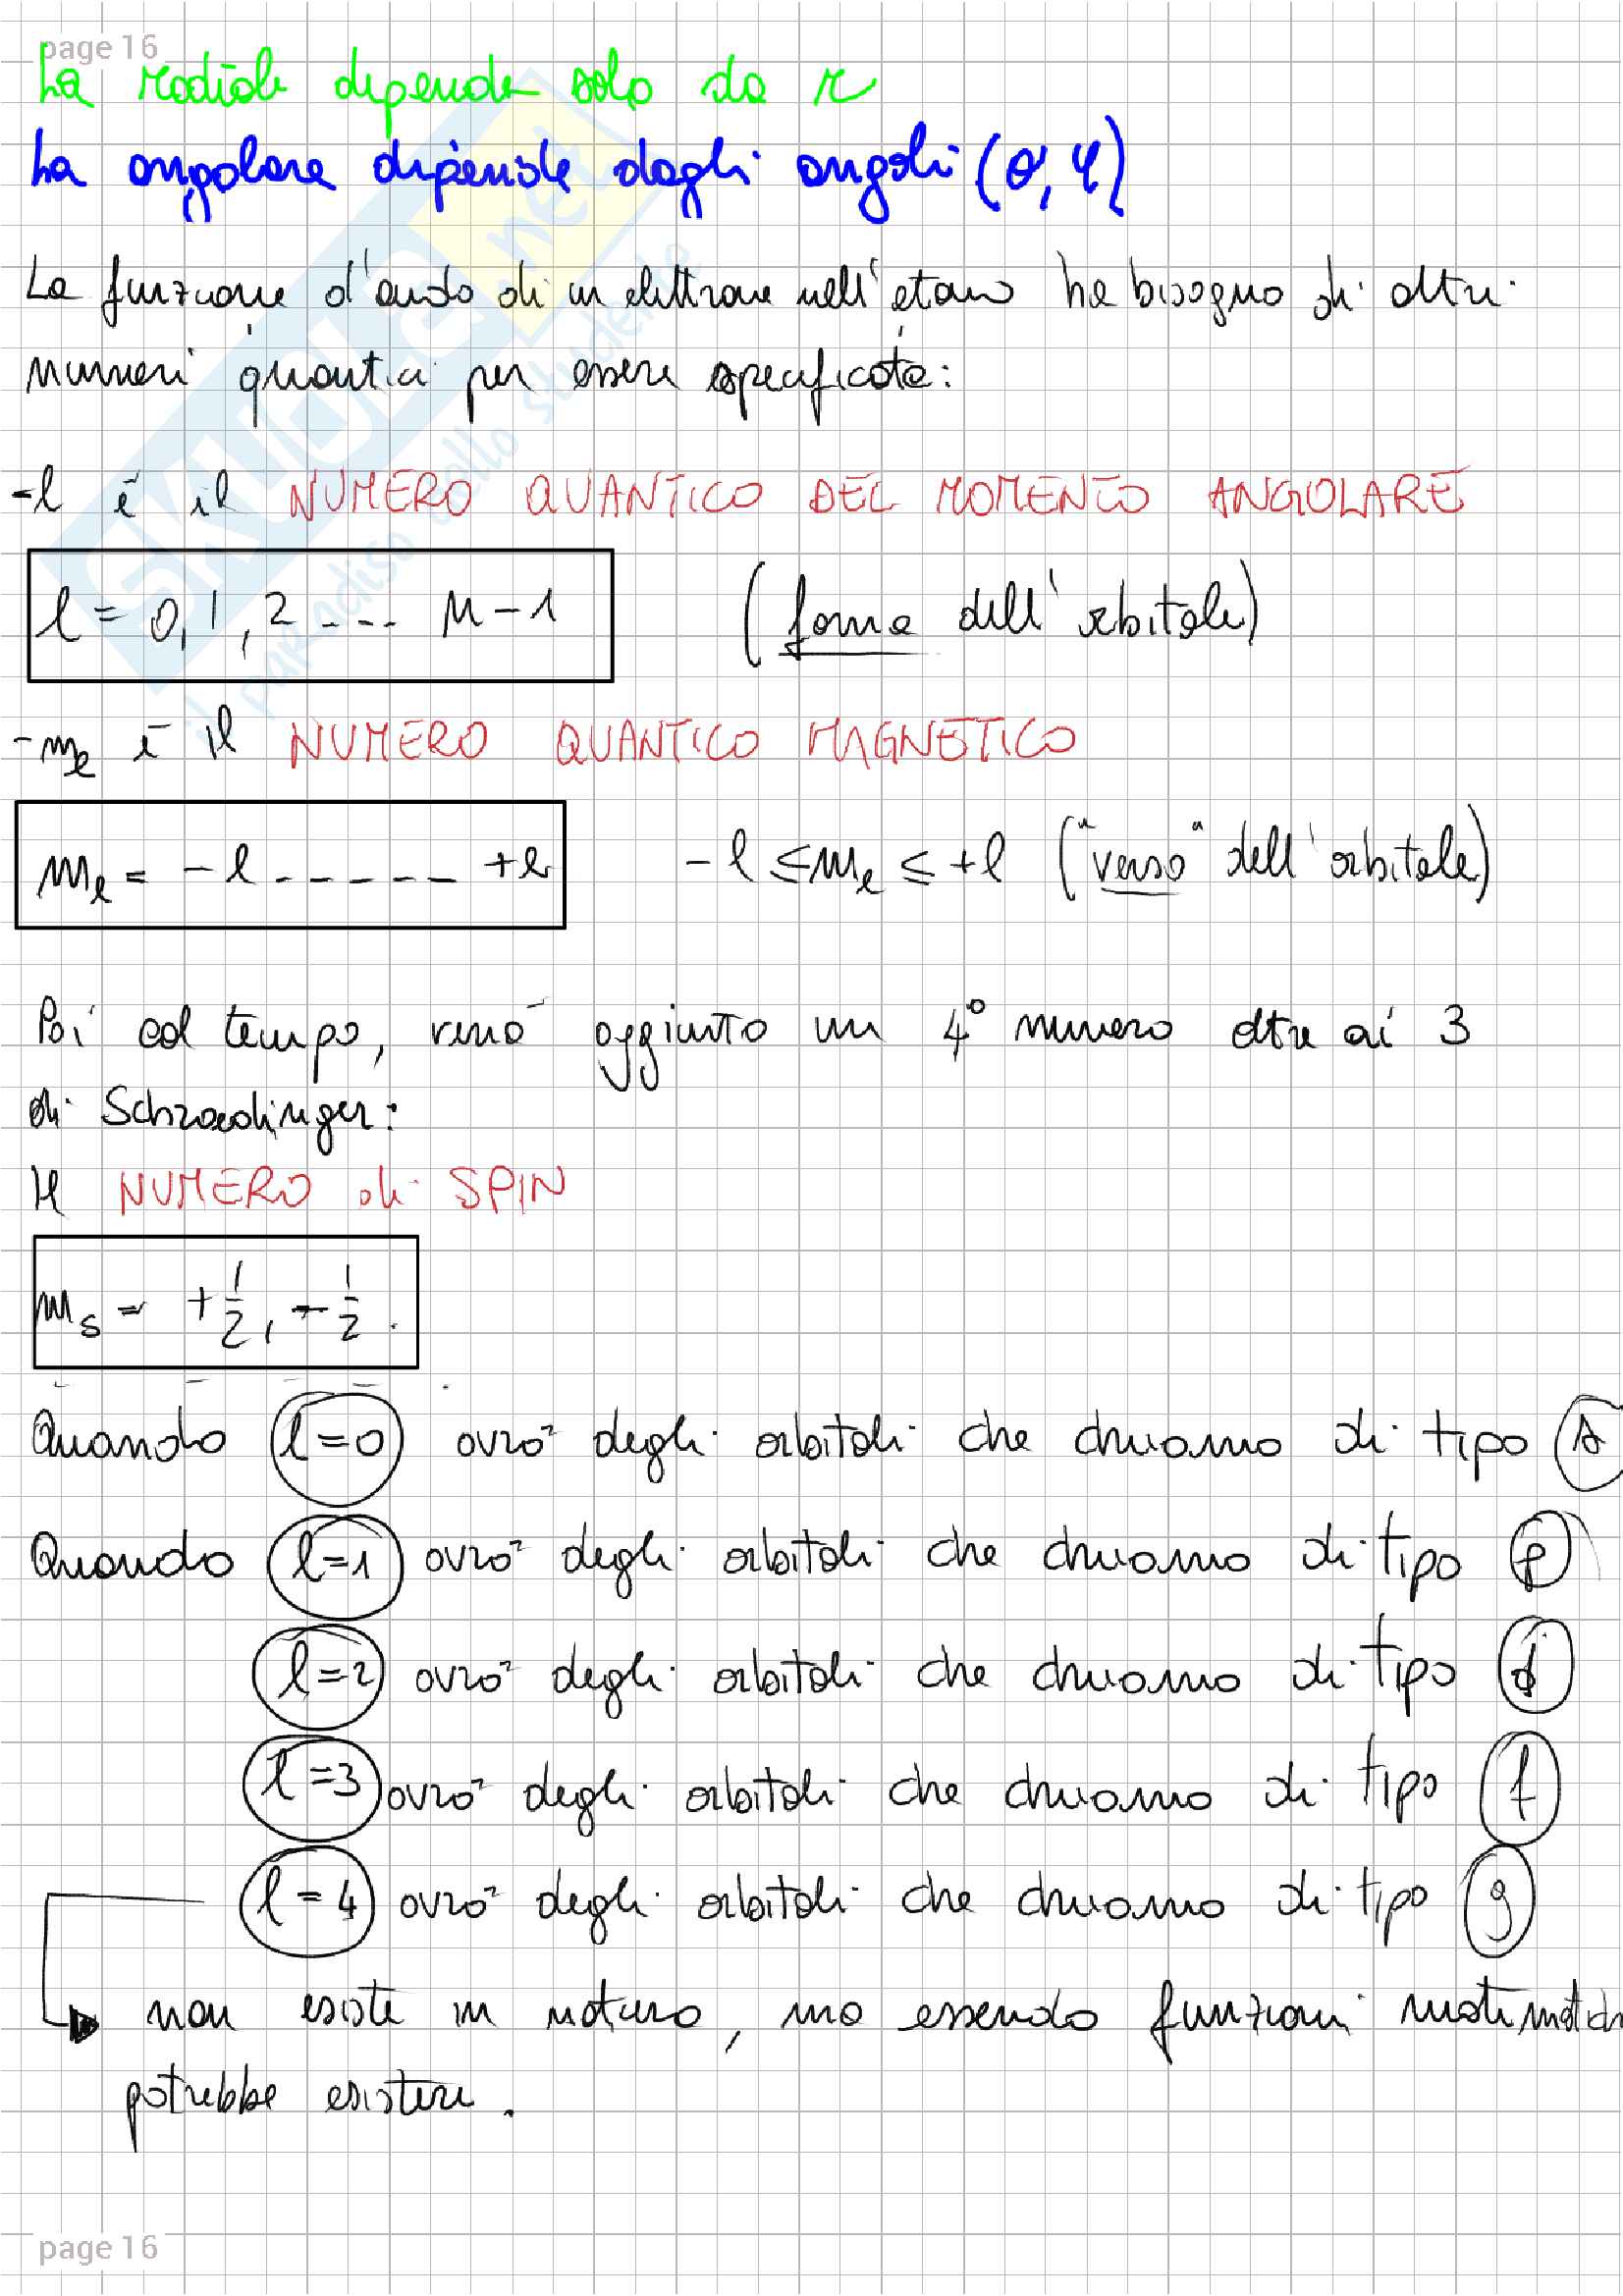 page 16
La radiale dipende solo da r
La angolare dipende dagli angoli (θ, φ)
La funzione d'onda di un elettrone nell'atomo ha bisogno di altri
numeri quantici per essere specificata:
-l è il NUMERO QUANTICO DEL MOMENTO ANGOLARE
l = 0, 1, 2 ---- n - 1 (forma dell'orbitale)
-mₗ è il NUMERO QUANTICO MAGNETICO
mₗ = - l - - - - - +l - l ≤ mₗ ≤ +l ("verso" dell'orbitale)
Poi col tempo, venò aggiunto un 4° numero oltre ai 3
di Schroedinger:
Il NUMERO di SPIN
mₛ = + 1/2, - 1/2.
Quando l=0 avrò degli orbitali che chiamo di tipo s
Quando l=1 avrò degli orbitali che chiamo di tipo p
l=2 avrò degli orbitali che chiamo di tipo d
l=3 avrò degli orbitali che chiamo di tipo f
l=4 avrò degli orbitali che chiamo di tipo g
non esiste in natura, ma essendo funzioni matematich
potrebbe esistere.
page 16
SKUOLA.net
il paradiso dello studente